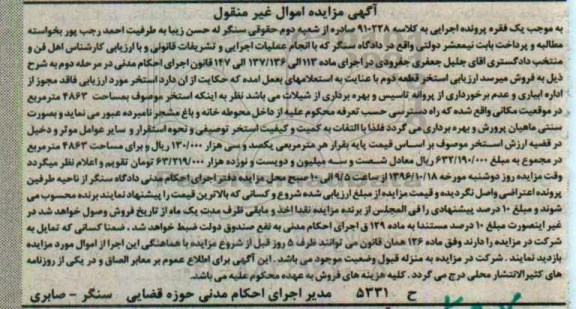 آگهی مزایده اموال غیر منقول
به موجب یک فقره پرونده اجرایی به کلاسه ۹۱۰۲۲۸ صادره از شعبه دوم حقوقی سنگر له حسن زیبا به طرفیت احمد رجب پور بخواسته
مطالبه و پرداخت بابت نیمعشر دولتی واقع در دادگاه سنگر که با انجام عملیات اجرایی و تشریفات قانونی و با ارزیابی کارشناس اهل فن و
منتخب دادگستری آقای جلیل جعفری جفرودی در اجرای ماده ۱۱۳ الی ۱۳۷/۱۳۶ الی ۱۴۷ قانون اجرای احکام مدنی در مرحله دوم به شرح
ذیل به فروش میرسد ارزیابی استخر قطعه دوم با عنایت به استعلامهای بعمل آمده که حکایت از ان دارد استخر مورد ارزیابی فاقد مجوز از
اداره ابیاری و عدم برخورداری از پروانه تاسیس و بهره برداری از شیلات می باشد نظر به اینکه استخر موصوف بمساحت ۴۸۶۳ مترمربع
در موقعیت مکانی واقع شده که راه دسترسی حسب تعرفه محکوم علیه از داخل محوطه خانه و باغ مشجر نامبرده عبور می نماید و بصورت
سنتی ماهیان پرورش و بهره برداری می گردد فلذا با التفات به کمیت و کیفیت استخر توصیفی و نحوه استقرار و سایر عوامل موثر و دخیل
در قضیه ارزش استخر موصوف بر اساس قیمت پایه بقرار هر مترمربعی یکصد و سی هزار ۱۳۰/۰۰۰ ریال و برای مساحت ۴۸۶۳ مترمربع
در مجموع به مبلغ ۶۳۲/۱۹۰/۰۰۰ ریال معادل شصت و سه میلیون و دویست و نوزده هزار ۶۳/۲۱۹/۰۰۰ تومان تقویم و اعلام نظر میگردد
وقت مزایده روز دوشنبه مورخه ۱۳۹۶/۱۰/۱۸ از ساعت ۹/۵ الی ۱۰ صبح محل مزایده دفتر اجرای احکام مدنی دادگاه سنگر از ناحیه طرفین
پرونده اعتراضی واصل نگردیده و قیمت مزایده از مبلغ ارزیابی شده شروع و کسانی که بالاترین قیمت را پیشنهاد نمایند برنده محسوب می
شوند و مبلغ ۱۰ درصد پیشنهادی را فی المجلس از برنده مزایده نقدا اخذ و مابقی ظرف مدت یک ماه از تاریخ فروش وصول خواهد شد در
غیر اینصورت مبلغ ۱۰ درصد مستندا به ماده ۱۲۹ ق اجرای احکام مدنی به نفع صندوق دولت ضبط خواهد شد . ضمنا کسانی که تمایل به
شرکت در مزایده را دارند وفق ماده ۱۲۶ همان قانون می توانند ظرف ۵ روز قبل از شروع مزایده با هماهنگی این اجرا از اموال مورد مزایده
بازدید نمایند . شرکت در مزایده به منزله قبول وضعیت موجود می باشد . این آگهی برای اطلاع عموم بر معابر الصاق و در یکی از روزنامه
های کثیرالانتشار محلی درج می گردد . کلیه هزینه های فروش به عهده محکوم علیه می باشد .
ح ۵۳۳۱ مدیر اجرای احکام مدنی حوزه قضایی سنگر - صابری